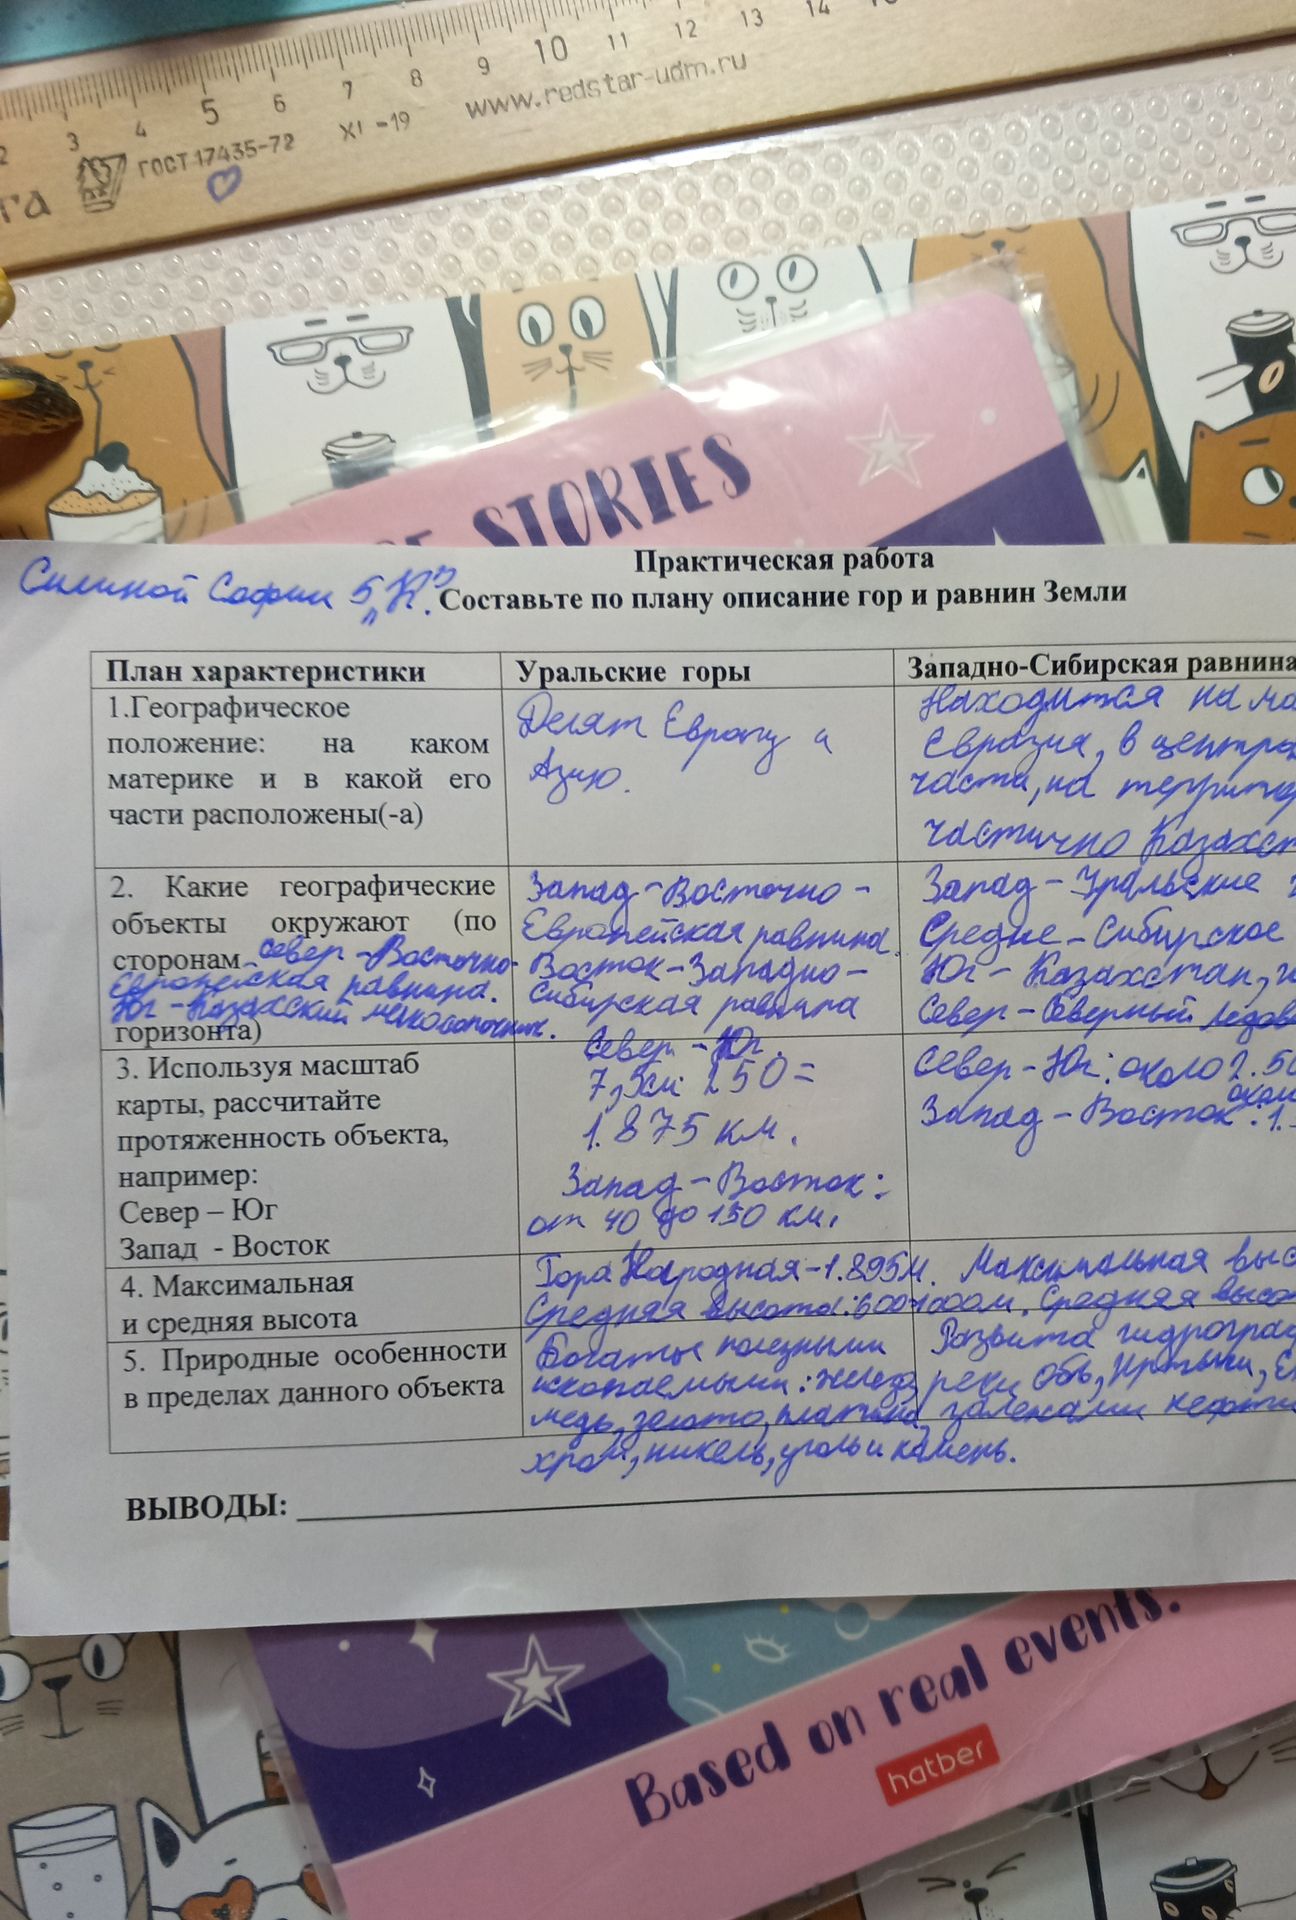 2 3 4 5 6 7 8 9 10 11 12 13 14
ГОСТ 17435-72 XI -19 www.redstar-udm.ru
STORIES
Практическая работа
Софии 5 „К".
Составьте по плану описание гор и равнин Земли
План характеристики
Уральские горы
Западно-Сибирская равнина
1.Географическое
положение: на каком
материке и в какой его
части расположены(-а)
Делят Европу и
Азию.
Находится на ма
Евразия, в центра
части, на территор
частично Казахст
2. Какие географические
объекты окружают (по
сторонам
горизонта)
Север - Восточно-
Европейская равнина.
Юг - Казахский мелкосопочник.
Запад - Восточно -
Европейская равнина.
Восток - Западно -
Сибирская равнина
Запад - Уральские г
Средне - Сибирское
Юг - Казахстан,
Север - Северный Ледов
3. Используя масштаб
карты, рассчитайте
протяженность объекта,
например:
Север – Юг
Запад - Восток
Север - Юг.
7,5см· 250=
1.875 км.
Запад - Восток:
от 40 до 150 км.
Север - Юг: около 2.50
Запад - Восток: 1.
4. Максимальная
и средняя высота
Гора Народная - 1.895м.
Средняя высота: 600-1000м.
Максимальная выс
Средняя высо
5. Природные особенности
в пределах данного объекта
Богаты полезными
ископаемыми: желез
медь, золото, платина,
хром, никель, уголь и камень.
Развита гидрограф
реки Обь, Иртыш, Е
залежами нефти
ВЫВОДЫ:
Based on real events.
hatber